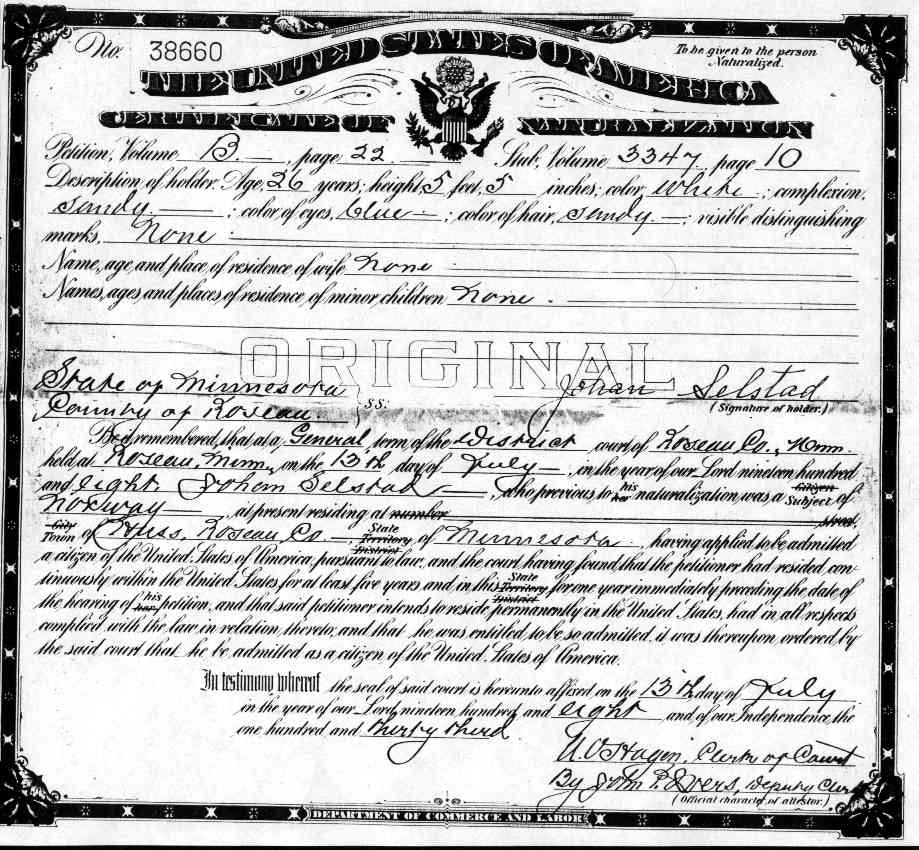 No. 38660
To be given to the person
Naturalized.
THE UNITED STATES OF AMERICA
CERTIFICATE OF NATURALIZATION
Petition, Volume B, page 22. Stub, Volume 3347, page 10
Description of holder. Age, 26 years; height, 5 feet, 5 inches; color, White; complexion,
Sandy; color of eyes, blue; color of hair, Sandy; visible distinguishing
marks, None
Name, age, and place of residence of wife None
Names, ages and places of residence, of minor children None.
ORIGINAL
State of Minnesota
County of Roseau. } ss:
Johan Selstad
(Signature of holder.)
Be it remembered, that at a General, term of the District court of Roseau Co., Minn.
held at Roseau, Minn., on the 13th day of July, in the year of our Lord nineteen hundred
and eight Johan Selstad, who previous to his her naturalization was a Citizen Subject of
Norway, at present residing at number street,
City Town of Huss, Roseau Co., State Territory District of Minnesota, having applied to be admitted
a citizen of the United States of America, pursuant to law, and the court having found that the petitioner had resided con-
tinuously within the United States for at least five years and in this State Territory District for one year immediately preceding the date of
the hearing of his her petition, and that said petitioner intends to reside permanently in the United States, had in all respects
complied with the law in relation thereto, and that he was entitled to be so admitted, it was thereupon ordered by
the said court that he be admitted as a citizen of the United States of America.
In testimony whereof the seal of said court is hereunto affixed on the 13th day of July
in the year of our Lord nineteen hundred and eight and of our Independence the
one hundred and thirty third
Clerk of Court
By John P. Deputy Clerk
(Official character of attestor.)
DEPARTMENT OF COMMERCE AND LABOR